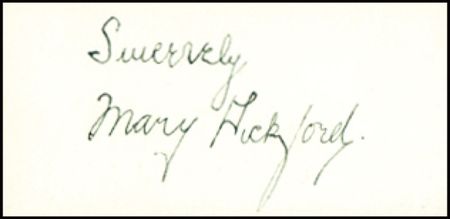 Sincerely
Mary Pickford.